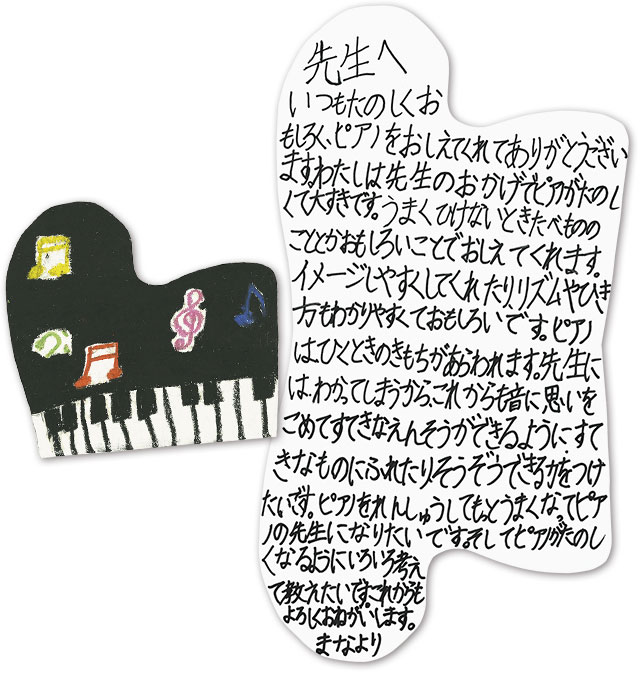 先生へ
いつもたのしくお
もしろく、ピアノをおしえてくれてありがとうござい
ます。わたしは先生のおかげでピアノがたのし
くて大すきです。うまくひけないときたべものの
こととかおもしろいことでおしえてくれます。
イメージしやすくしてくれたり、リズムやひき
方もわかりやすくておもしろいです。ピアノ
は、ひくときのきもちがあらわれます。先生に
は、わかってしまうから、これからも音に思いを
こめてすてきなえんそうができるようにすて
きなものにふれたり、そうぞうできる力をつけ
たいです。ピアノをれんしゅうしてもっとうまくなってピア
ノの先生になりたいです。そしてピアノがたのし
くなるようにいろいろ考え
て教えたいです。これからも
よろしくおねがいします。
まなより